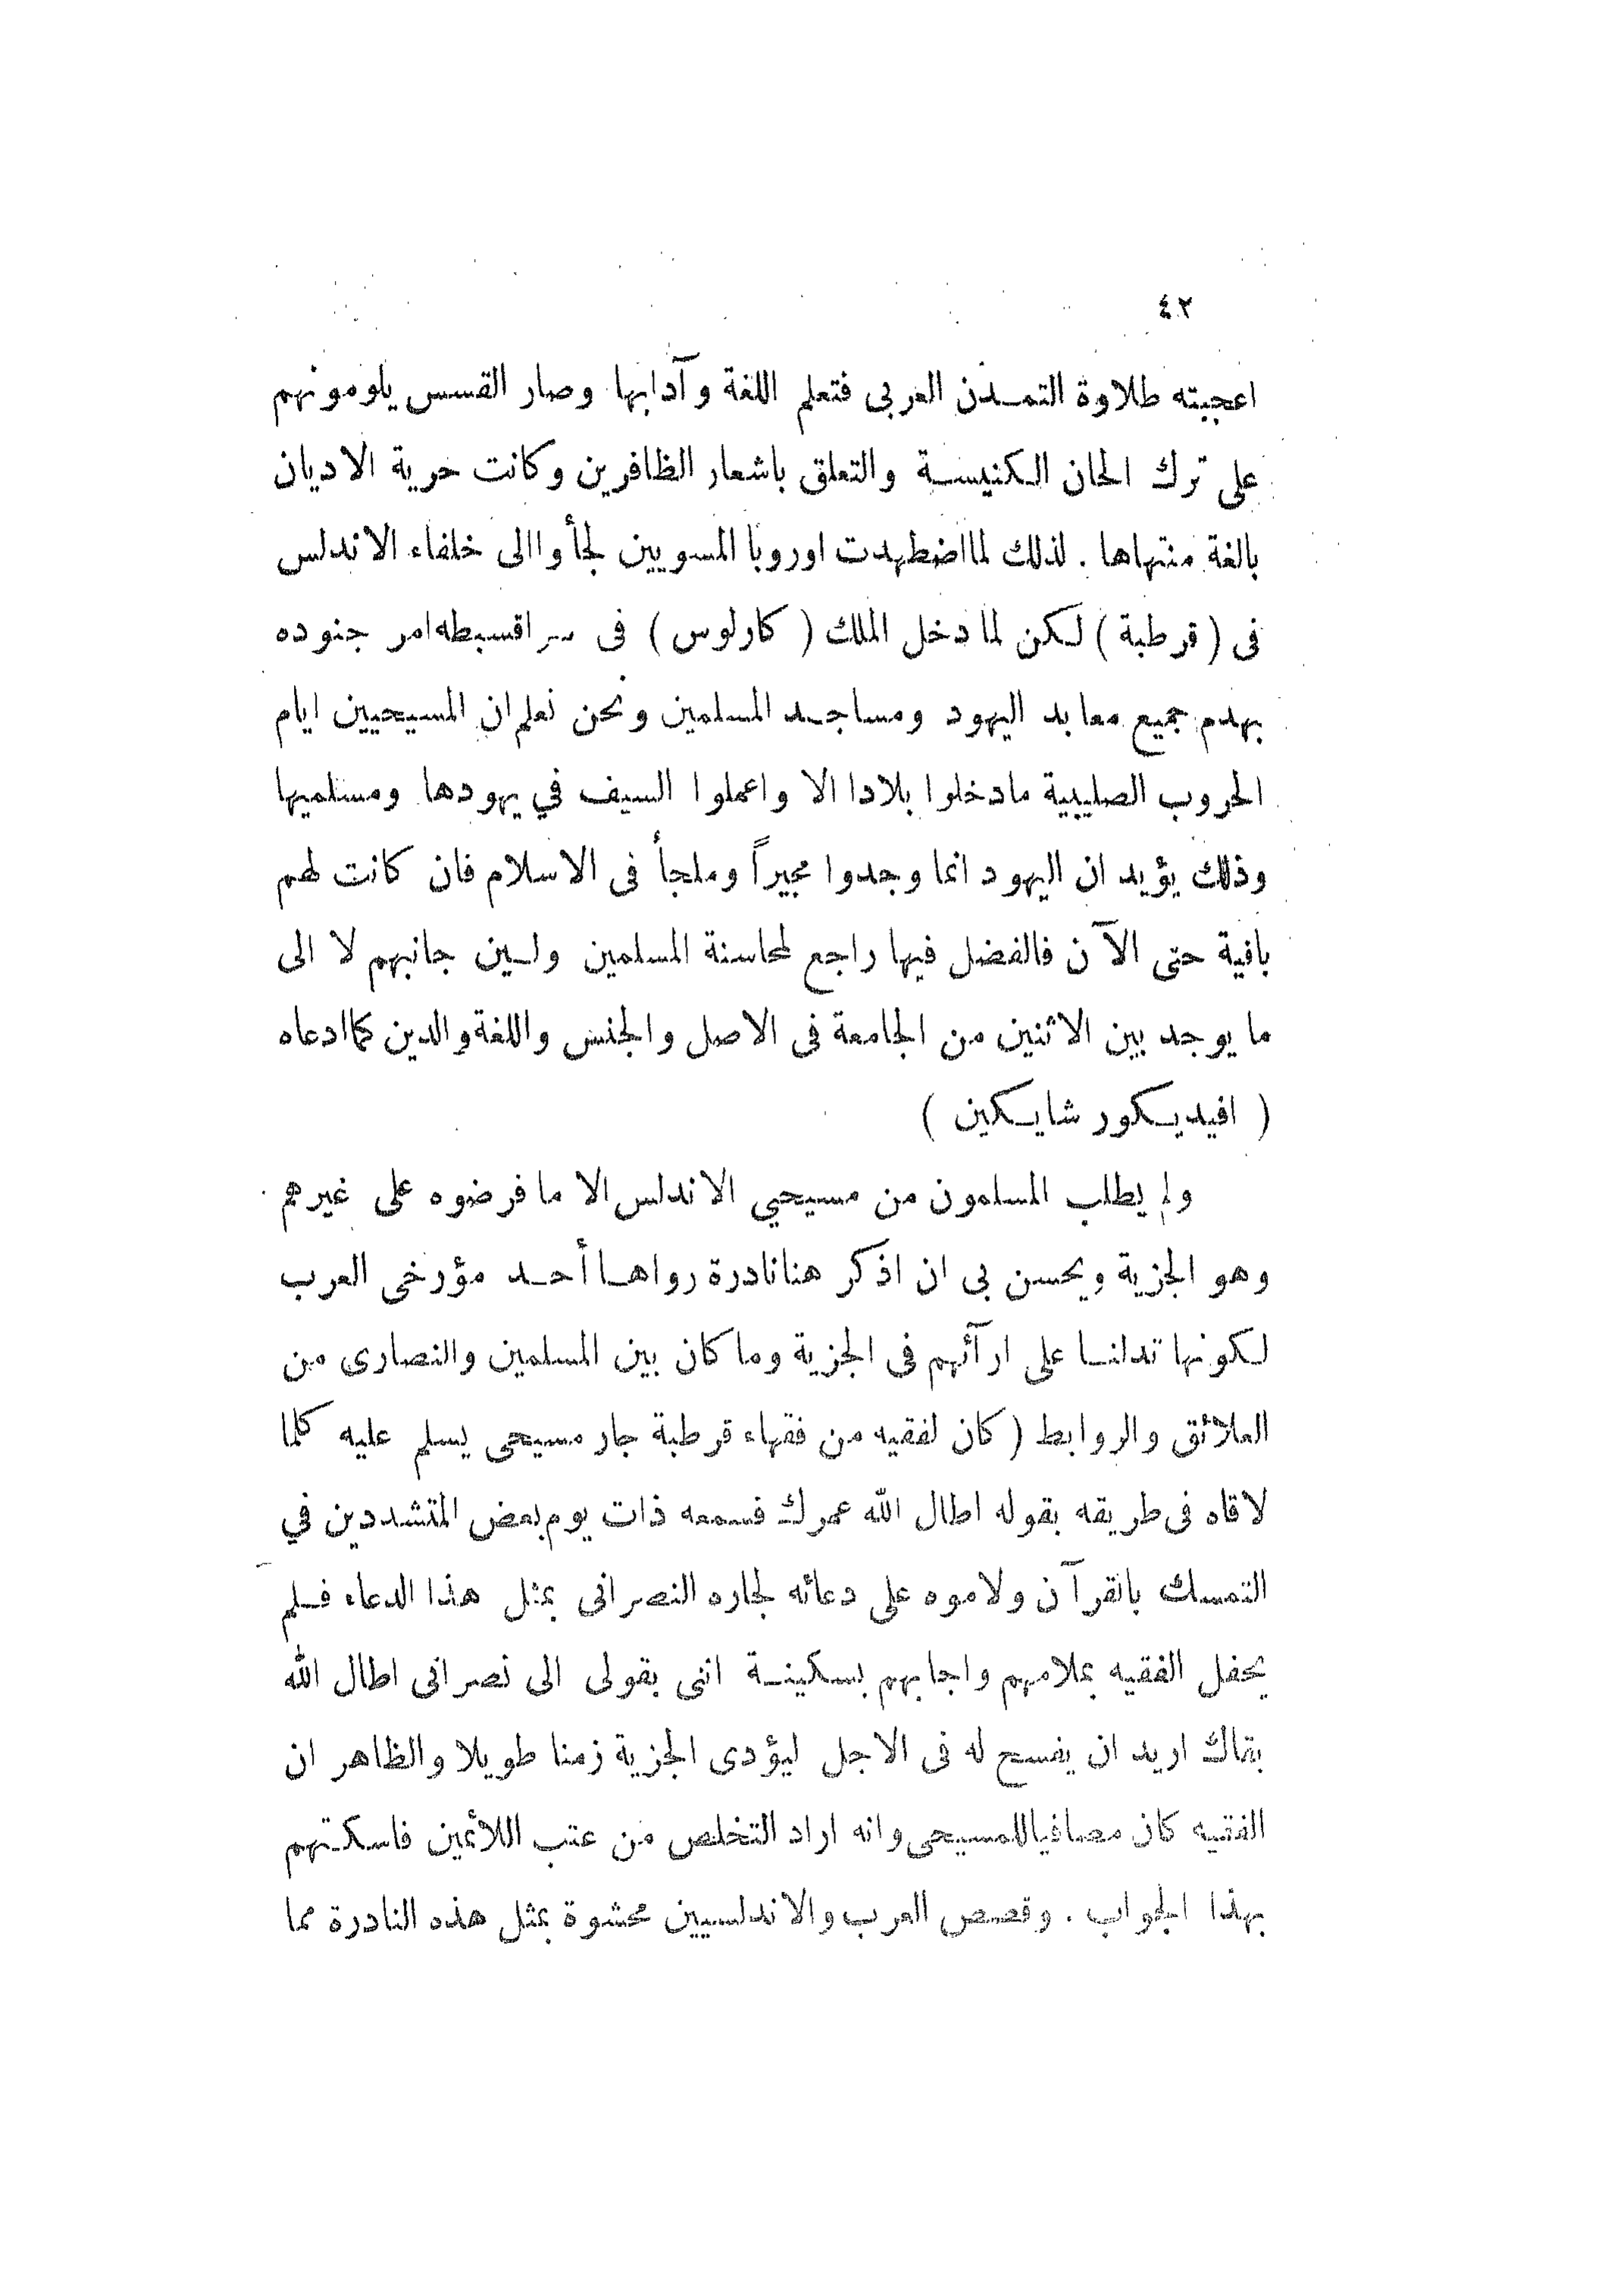 ٤٢
اعجبته طلاوة التمدن العربى فتعلم اللغة وآدابها وصار القسس يلومونهم
على ترك الحان الكنيسة والتعلق باشعار الظافرين وكانت حرية الاديان
بالغة منتهاها . لذلك لما اضطهدت اوروبا الموسويين لجأوا الى خلفاء الاندلس
فى ( قرطبة ) لكن لما دخل الملك ( كارلوس ) فى سراقسطه امر جنوده
بهدم جميع معابد اليهود ومساجد المسلمين ونحن نعلم ان المسيحيين ايام
الحروب الصليبية مادخلوا بلادا الا واعملوا السيف في يهودها ومسلميها
وذلك يؤيد ان اليهود انما وجدوا مجيراً وملجأ فى الاسلام فان كانت لهم
باقية حتى الآن فالفضل فيها راجع لمحاسنة المسلمين ولين جانبهم لا الى
ما يوجد بين الاثنين من الجامعة فى الاصل والجنس واللغة والدين كما ادعاه
( افيديكور شايكين )
ولم يطلب المسلمون من مسيحي الاندلس الا ما فرضوه على غيرهم
وهو الجزية ويحسن بى ان اذكر هنا نادرة رواها أحد مؤرخى العرب
لكونها تدلنا على ارآئهم فى الجزية وما كان بين المسلمين والنصارى من
العلائق والروابط ( كان لفقيه من فقهاء قرطبة جار مسيحى يسلم عليه كلما
لاقاه فى طريقه بقوله اطال الله عمرك فسمعه ذات يوم بعض المتشددين في
التمسك بالقرآن ولاموه على دعائه لجاره النصرانى بمثل هذا الدعاء فلم
يحفل الفقيه بملامهم واجابهم بسكينة اننى بقولى الى نصرانى اطال الله
بقاك اريد ان يفسح له فى الاجل ليؤدى الجزية زمنا طويلا والظاهر ان
الفقيه كان مصافيا للمسيحى وانه اراد التخلص من عتب اللائمين فاسكتهم
بهذا الجواب . وقصص العرب والاندلسيين محشوة بمثل هذه النادرة مما